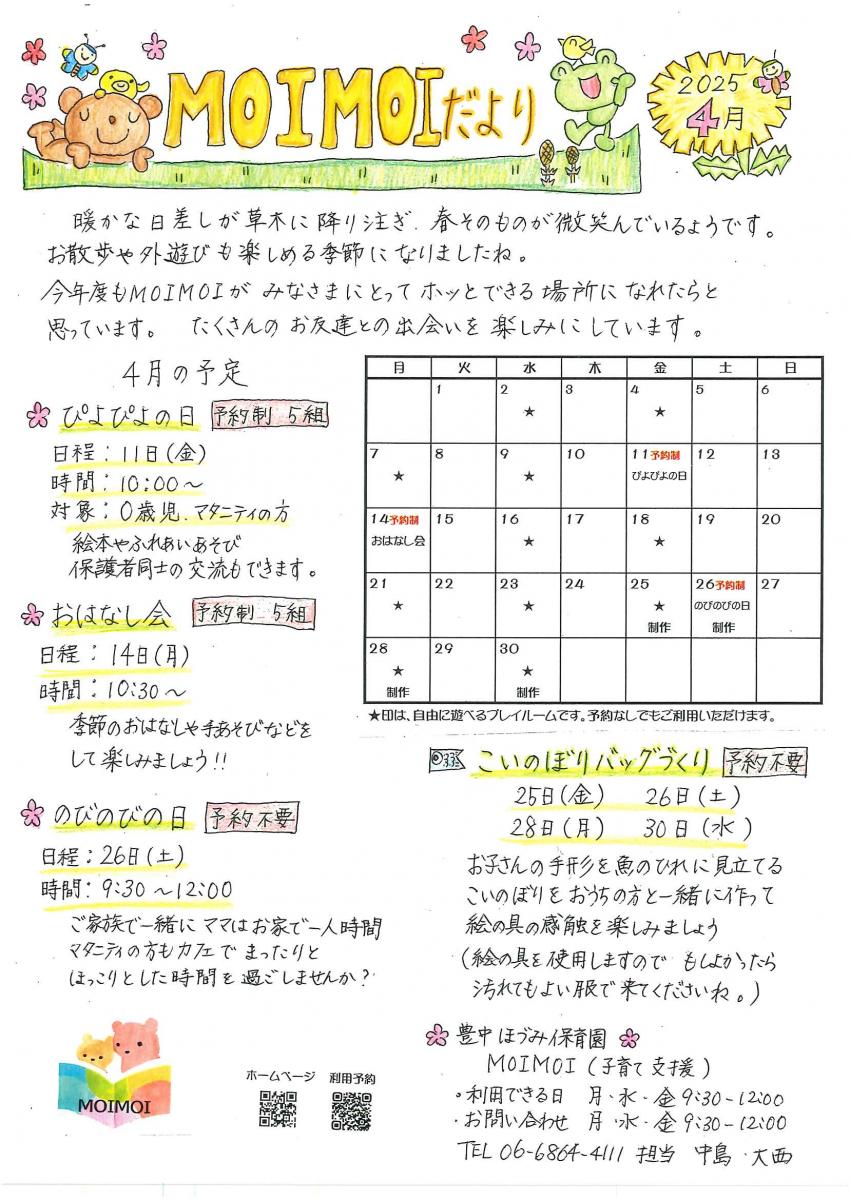 MOIMOIだより
2025
4月
暖かな日差しが草木に降り注ぎ、春そのものが微笑んでいるようです。
お散歩や外遊びも楽しめる季節になりましたね。
今年度もMOIMOIが みなさまにとって ホッとできる場所に なれたらと
思っています。 たくさんの お友達との出会いを 楽しみにしています。
4月の予定
ぴよぴよの日 予約制 5組
日程：11日(金)
時間：10:00～
対象：0歳児、マタニティの方
絵本やふれあいあそび
保護者同士の交流もできます。
おはなし会 予約制 5組
日程：14日(月)
時間：10:30～
季節のおはなしや手あそびなどを
して楽しみましょう!!
のびのびの日 予約不要
日程：26日(土)
時間：9:30～12:00
ご家族で一緒に ママはお家で一人時間
マタニティの方もカフェで まったりと
ほっこりとした時間を過ごしませんか？
月 火 水 木 金 土 日
1 2 3 4 5 6
★ ★
7 8 9 10 11予約制 12 13
★ ★ ぴよぴよの日
14予約制 15 16 17 18 19 20
おはなし会 ★ ★
21 22 23 24 25 26予約制 27
★ ★ ★ のびのびの日
制作 制作
28 29 30
★ ★
制作 制作
★印は、自由に遊べるプレイルームです。予約なしでもご利用いただけます。
こいのぼりバッグづくり 予約不要
25日(金) 26日(土)
28日(月) 30日(水)
お子さんの手形を魚のひれに見立てる
こいのぼりをおうちの方と一緒に作って
絵の具の感触を楽しみましょう
(絵の具を使用しますので もしよかったら
汚れてもよい服で来てくださいね。)
豊中ほづみ保育園
MOIMOI(子育て支援)
・利用できる日 月・水・金 9:30-12:00
・お問い合わせ 月・水・金 9:30-12:00
TEL 06-6864-4111 担当 中島・大西
MOIMOI
ホームページ 利用予約